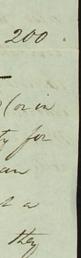 200.
(or in
ty for
an
a
they